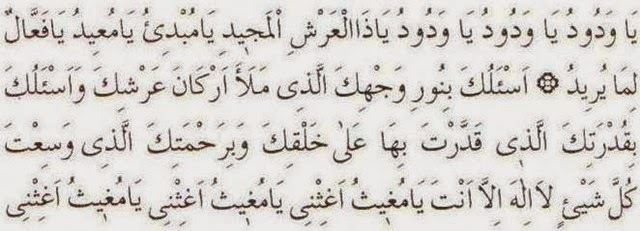 يَا وَدُودُ يَا وَدُودُ يَا وَدُودُ يَاذَاالْعَرْشِ اْلمَجِيدِ يَامُبْدِئُ يَامُعِيدُ يَافَعَّالٌ
لِمَا يُرِيدُ ۞ اَسْئَلُكَ بِنُورِ وَجْهِكَ الَّذِى مَلَأَ اَرْكَانَ عَرْشِكَ وَاَسْئَلُكَ
بِقُدْرَتِكَ الَّذِى قَدَّرْتَ بِهَا عَلٰى خَلْقِكَ وَبِرَحْمَتِكَ الَّذِى وَسِعْتَ
كُلَّ شَيْئٍ لاَاِلٰهَ اِلاَّ اَنْتَ يَامُغِيثُ اَغِثْنِى يَامُغِيثُ اَغِثْنِى يَامُغِيثُ اَغِثْنِى